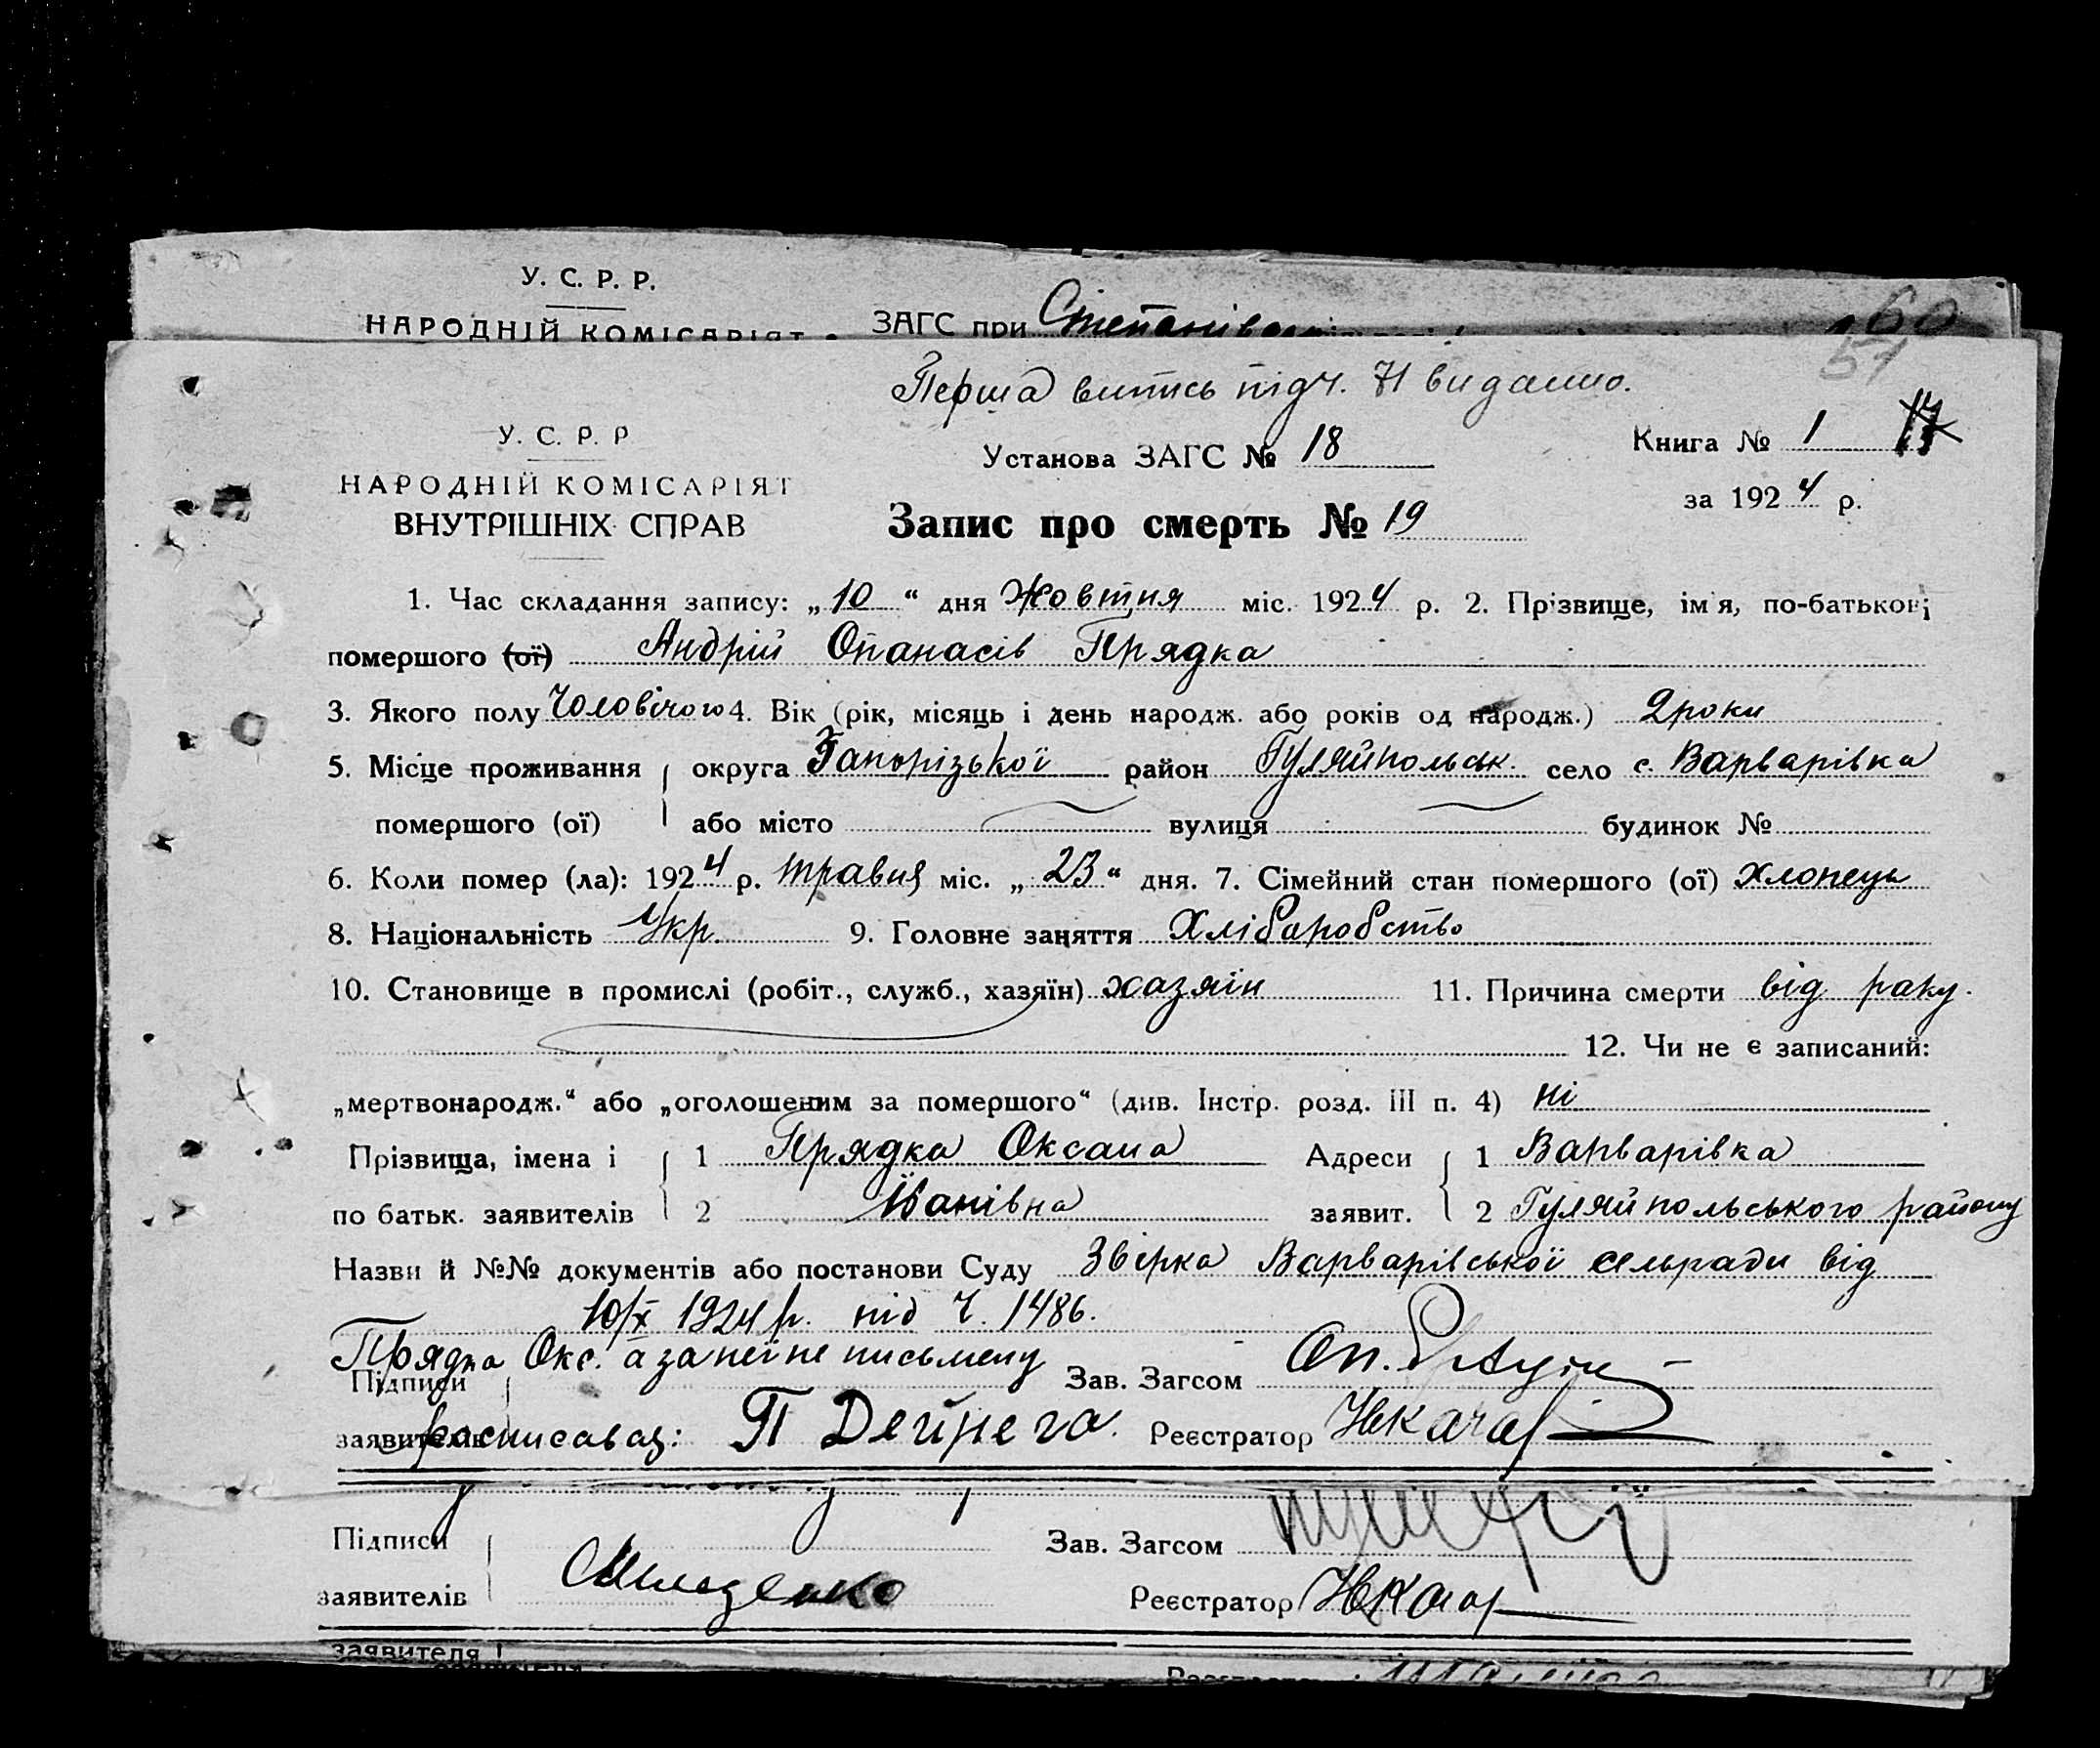 У. С. Р. Р.
НАРОДНІЙ КОМІСАРІЯТ ЗАГС при
60
57
Перша випись під ч. 71 видано.
У. С. Р. Р
Установа ЗАГС № 18 Книга № 1 17
НАРОДНІЙ КОМІСАРІЯТ
за 1924 р.
ВНУТРІШНІХ СПРАВ Запис про смерть № 19
1. Час складання запису: „10“ дня Жовтня міс. 1924 р. 2. Прізвище, ім'я, по-батькові
помершого (ої) Андрій Опанасів Прядка
3. Якого полу Чоловічого 4. Вік (рік, місяць і день народж. або років од народж.) 2 роки
5. Місце проживання округа Запорізької район Гуляйпольськ. село с. Варварівка
помершого (ої) або місто вулиця будинок №
6. Коли помер (ла): 1924 р. травня міс. „23“ дня. 7. Сімейний стан помершого (ої) Хлопець
8. Національність Укр. 9. Головне заняття Хліборобство
10. Становище в промислі (робіт., служб., хазяїн) хазяїн 11. Причина смерти від раку.
12. Чи не є записаний:
„мертвонародж.“ або „оголошеним за помершого“ (див. Інстр. розд. III п. 4) ні
Прізвища, імена і 1 Прядка Оксана Адреси 1 Варварівка
по батьк. заявителів 2 Іванівна заявит. 2 Гуляйпольського району
Назви й №№ документів або постанови Суду Звірка Варварівської сельради від
10/X 1924 р. під ч. 1486.
Прядка Окс. а за неї не письмену
Підписи Зав. Загсом
заявителів росписавсь: П Дейнега. Реєстратор
Підписи Зав. Загсом
заявителів Реєстратор
заявителя